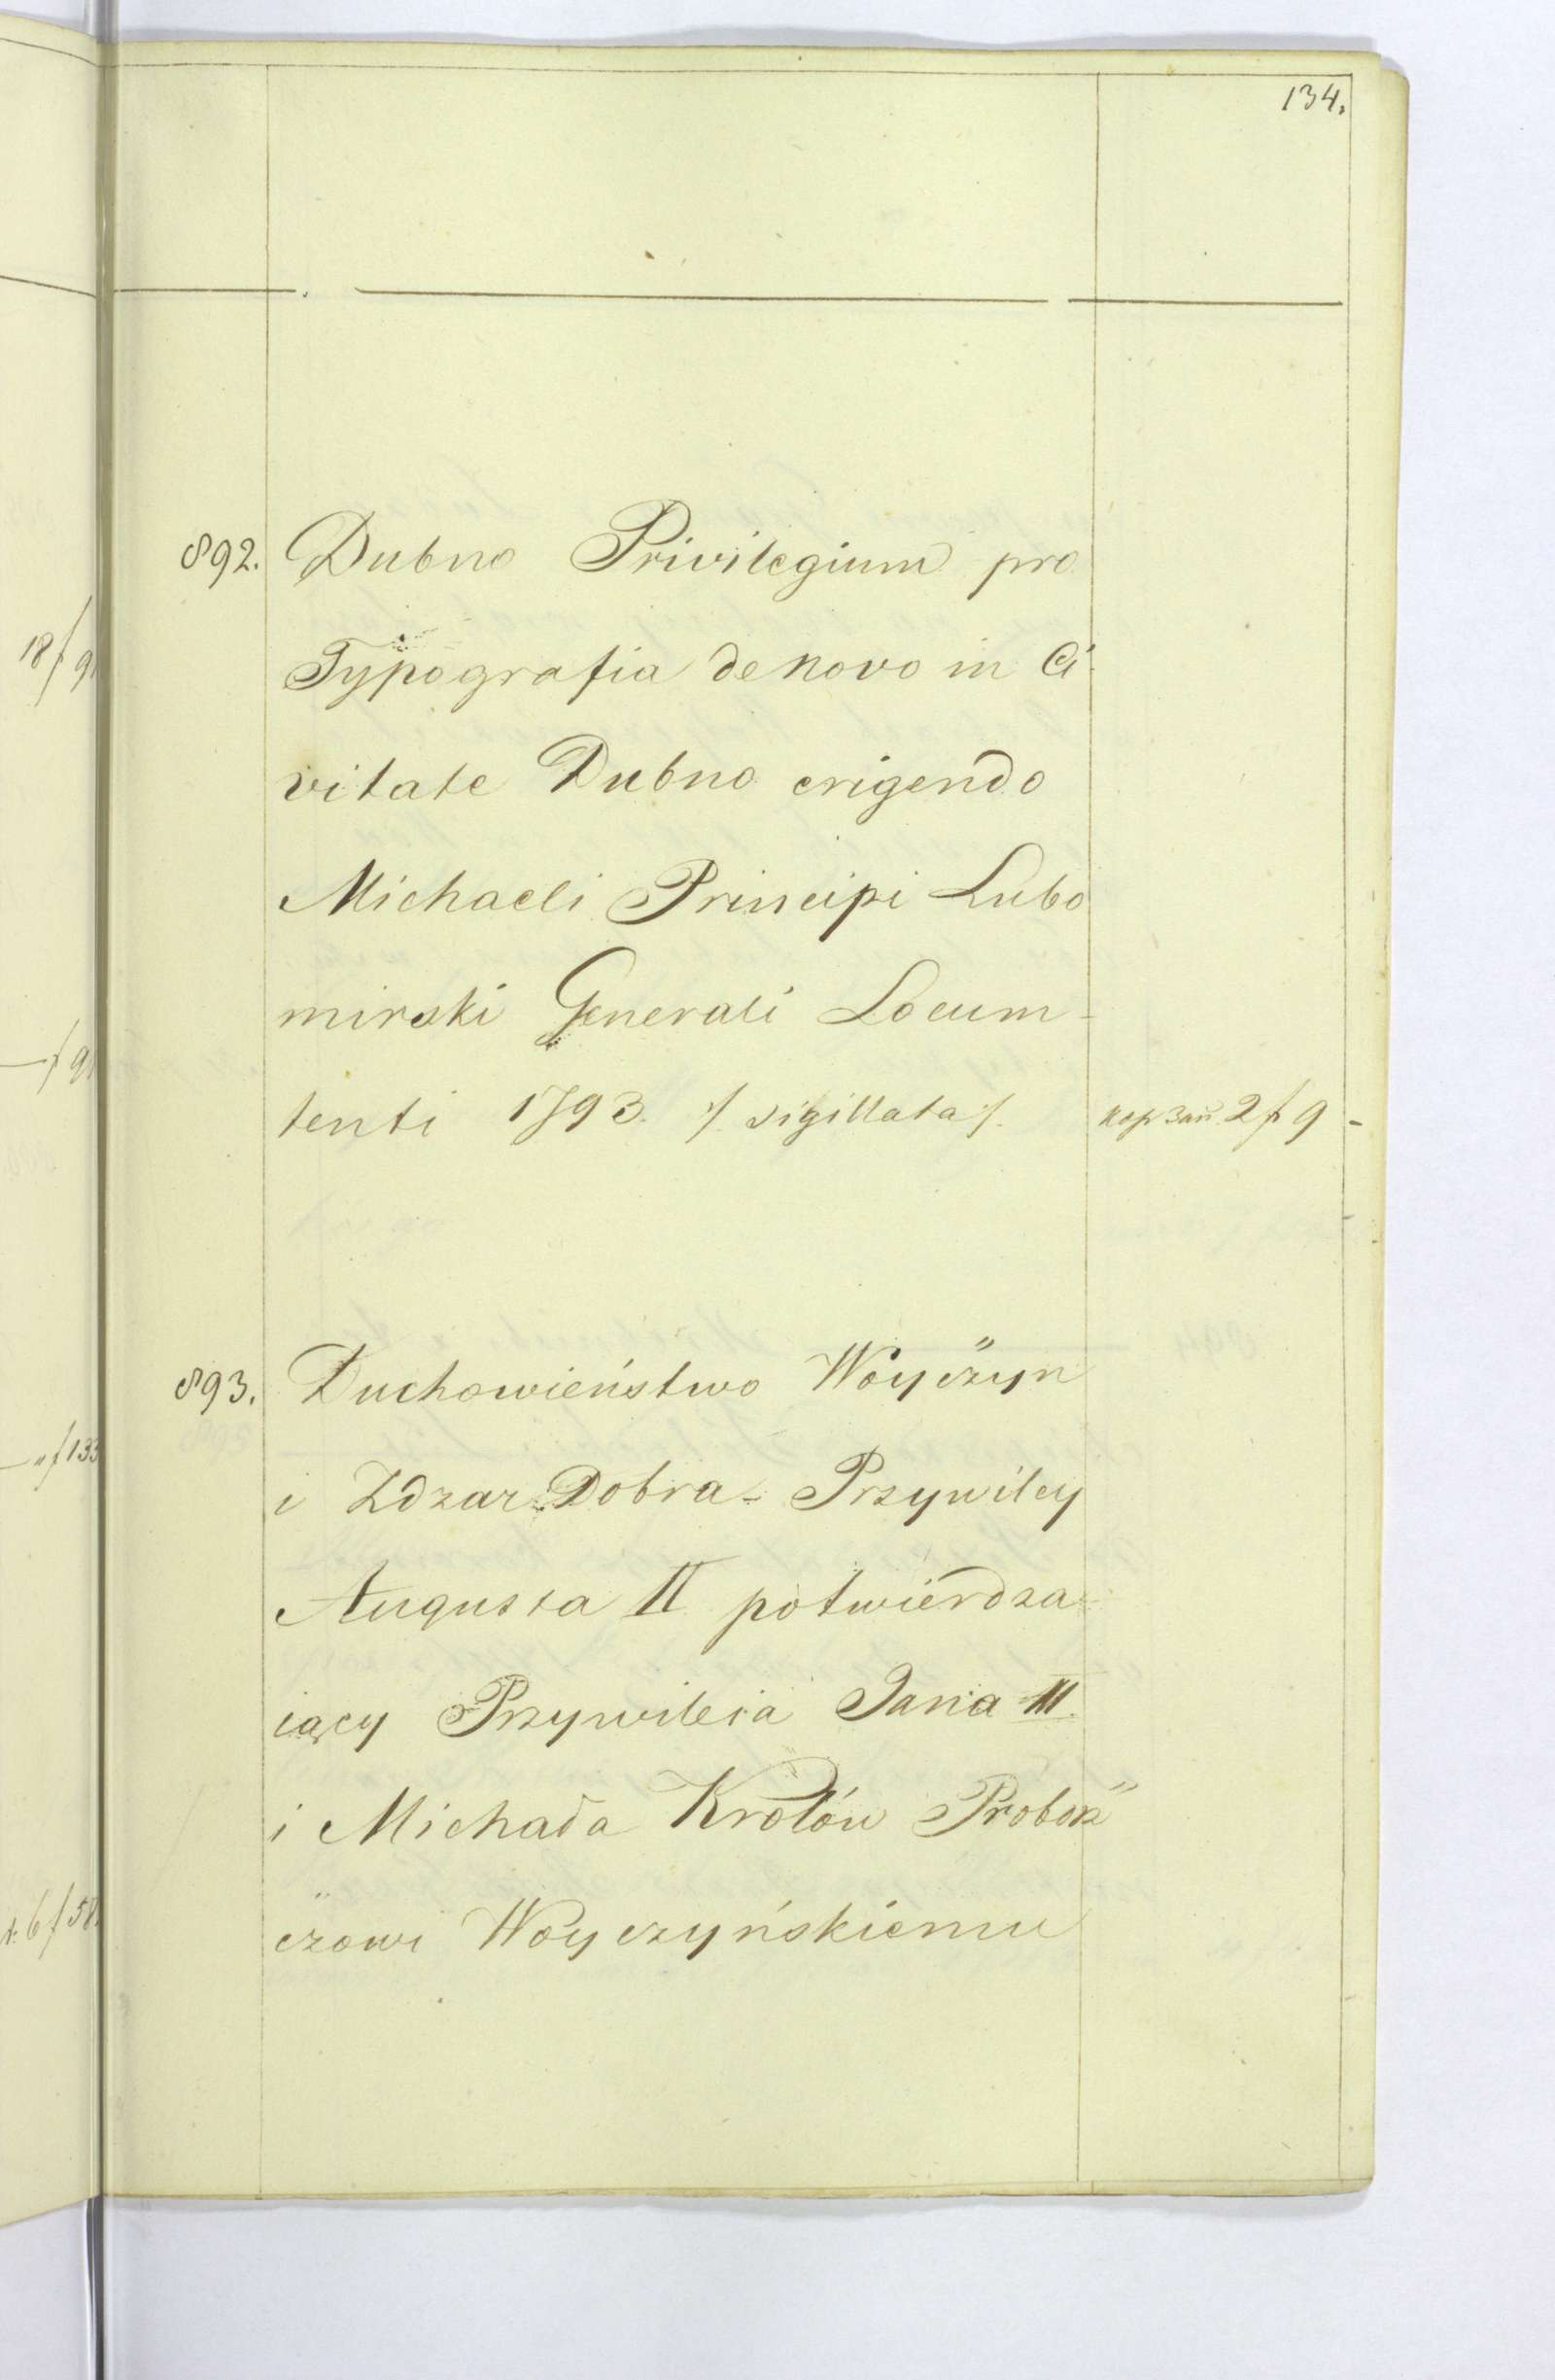 134.
892. Dubno Privilegium pro
Typografia de novo in Ci-
vitate Dubno erigendo
Michaeli Principi Lubo
mirski Generali Locum-
tenti 1793. ./. sigillata ./. кор Зап. 2 f 9 -
893. Duchowieństwo Woyczyn
i Zdzar Dobra - Przywiley
Augusta II potwierdza
iący Przywileia Jana III.
i Michała Królów Probosz"
"czowi Woyczyńskiemu
18/9
f 9
" f 133
6 f 58